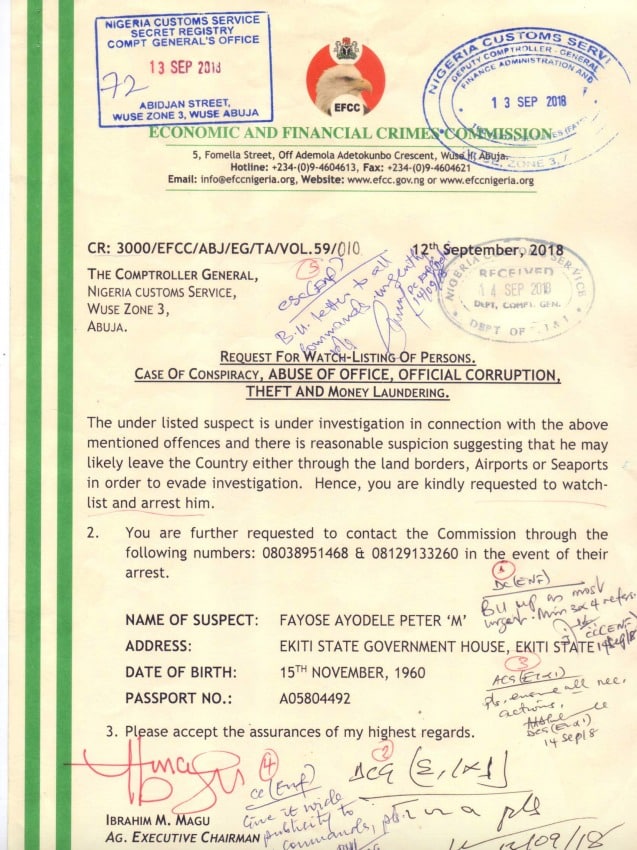 NIGERIA CUSTOMS SERVICE
SECRET REGISTRY
COMPT GENERAL'S OFFICE
13 SEP 2018
72
ABIDJAN STREET,
WUSE ZONE 3, WUSE ABUJA
EFCC
NIGERIA CUSTOMS SERVI
DEPUTY COMPTROLLER - GENERAL
FINANCE ADMINISTRATION AND
13 SEP 2018
WUSE, ZONE 3,
ECONOMIC AND FINANCIAL CRIMES COMMISSION
5, Fomella Street, Off Ademola Adetokunbo Crescent, Wuse II, Abuja.
Hotline: +234-(0)9-4604613, Fax: +234-(0)9-4604621
Email: info@efccnigeria.org, Website: www.efcc.gov.ng or www.efccnigeria.org
CR: 3000/EFCC/ABJ/EG/TA/VOL.59/010
12th September, 2018
THE COMPTROLLER GENERAL,
NIGERIA CUSTOMS SERVICE,
WUSE ZONE 3,
ABUJA.
5
csc(Enf)
B.U. letter to all
commands urgently
14/09/18
NIGERIA CUSTOMS SERVICE
RECEIVED
14 SEP 2018
DEPT, COMPT. GEN.
DEPT OF E, I & I
REQUEST FOR WATCH-LISTING OF PERSONS.
CASE OF CONSPIRACY, ABUSE OF OFFICE, OFFICIAL CORRUPTION,
THEFT AND MONEY LAUNDERING.
The under listed suspect is under investigation in connection with the above
mentioned offences and there is reasonable suspicion suggesting that he may
likely leave the Country either through the land borders, Airports or Seaports
in order to evade investigation. Hence, you are kindly requested to watch-
list and arrest him.
2. You are further requested to contact the Commission through the
following numbers: 08038951468 & 08129133260 in the event of their
arrest.
DC(ENF)
B.U up as most
urgent. Min 3x4 refers.
CC(ENF)
14/Sep/18
NAME OF SUSPECT: FAYOSE AYODELE PETER 'M'
ADDRESS: EKITI STATE GOVERNMENT HOUSE, EKITI STATE
DATE OF BIRTH: 15TH NOVEMBER, 1960
PASSPORT NO.: A05804492
3
ACG(EI&I)
pls, ensure all nec.
actions.
DCG(EI&I)
14 Sep/8
3. Please accept the assurances of my highest regards.
4
CC(Enf)
Give it wide
publicity to
commands, pls.
2
DCG (E, I & I)
pls
12/09/18
IBRAHIM M. MAGU
AG. EXECUTIVE CHAIRMAN